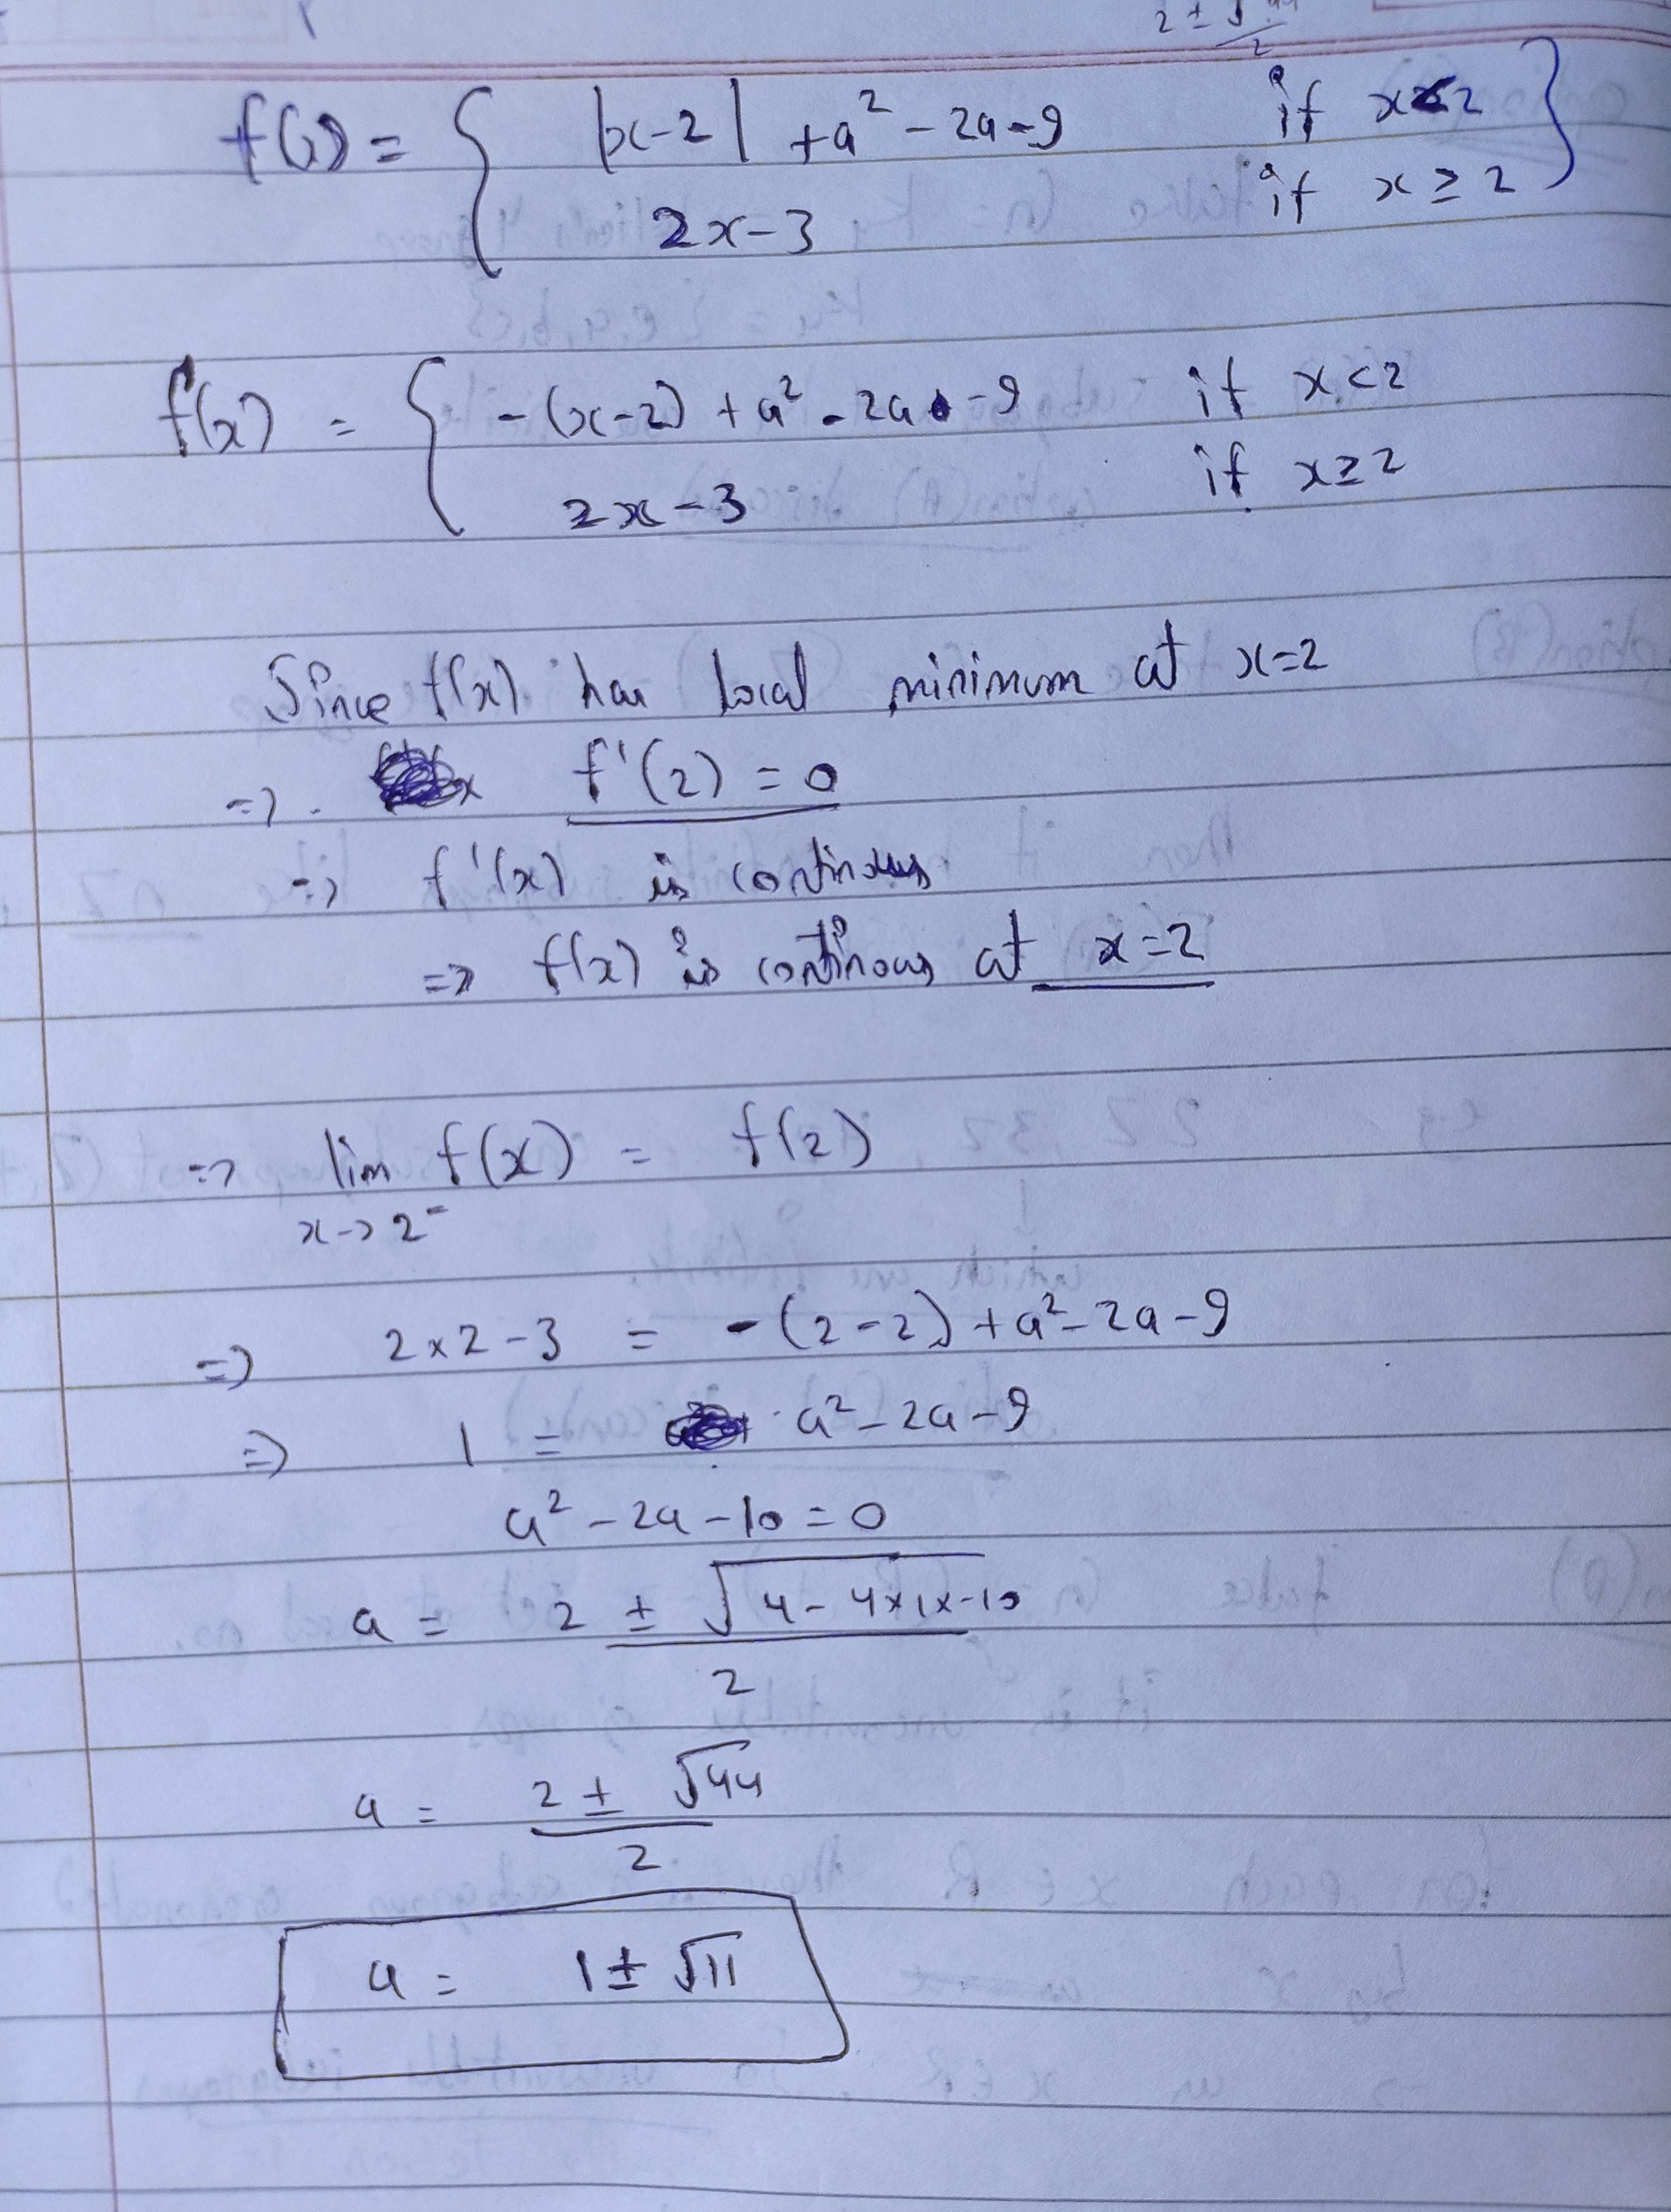 2 ±
2
f(x) = { |x-2| + a² - 2a - 9 if x < 2 }
2x - 3 if x ≥ 2
f(x) = { -(x-2) + a² - 2a - 9 if x < 2
2x - 3 if x ≥ 2
Since f(x) has local minimum at x = 2
=> f'(2) = 0
=> f'(x) is continous
=> f(x) is continous at x = 2
=> lim f(x) = f(2)
x -> 2⁻
=> 2 × 2 - 3 = -(2-2) + a² - 2a - 9
=> 1 = a² - 2a - 9
a² - 2a - 10 = 0
a = 2 ± √4 - 4×1×-10
2
a = 2 ± √44
2
a = 1 ± √11